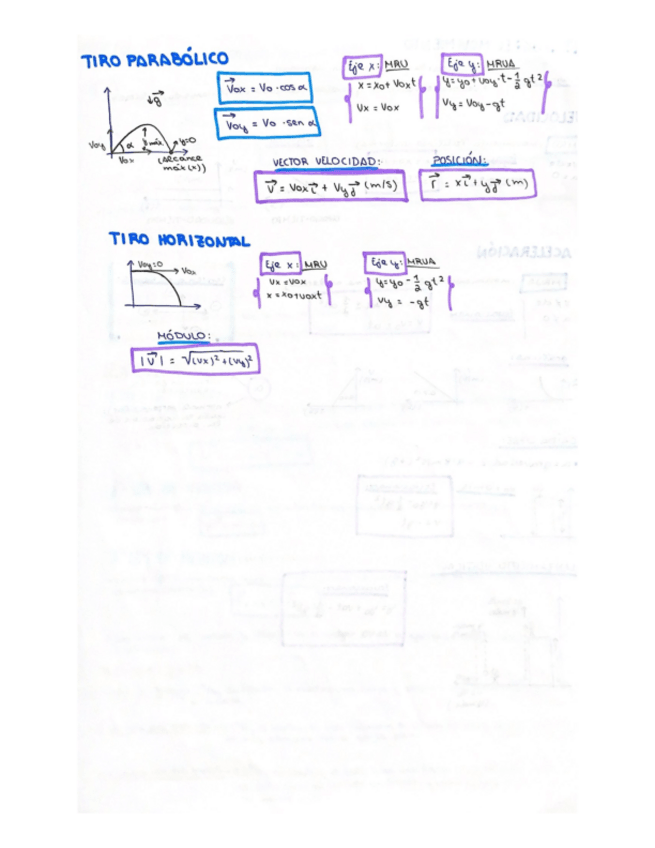 TIRO PARABÓLICO
↓g⃗
Voy
α
Vox
máx
y=0
(Alcance
máx(x))
V⃗ox = Vo · cos α
V⃗oy = Vo · sen α
Eje x: MRU
x = x0 + Vox t
Vx = Vox
Eje y: MRUA
y = y0 + Voy · t - 1/2 gt²
Vy = Voy - gt
VECTOR VELOCIDAD:
V⃗ = Vox i⃗ + Vy j⃗ (m/s)
POSICIÓN:
r⃗ = x i⃗ + y j⃗ (m)
TIRO HORIZONTAL
Voy=0
Vox
Eje x: MRU
Vx = Vox
x = x0 + Vox t
Eje y: MRUA
y = y0 - 1/2 gt²
Vy = -gt
MÓDULO:
|V⃗| = √(Vx)² + (Vy)²